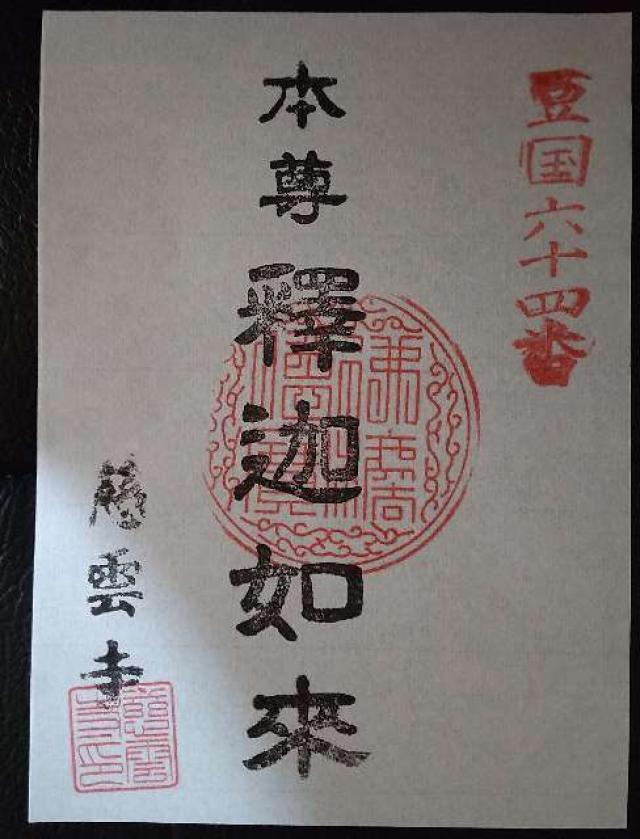 豆国六十四番
本尊 釋迦如來
慈雲寺